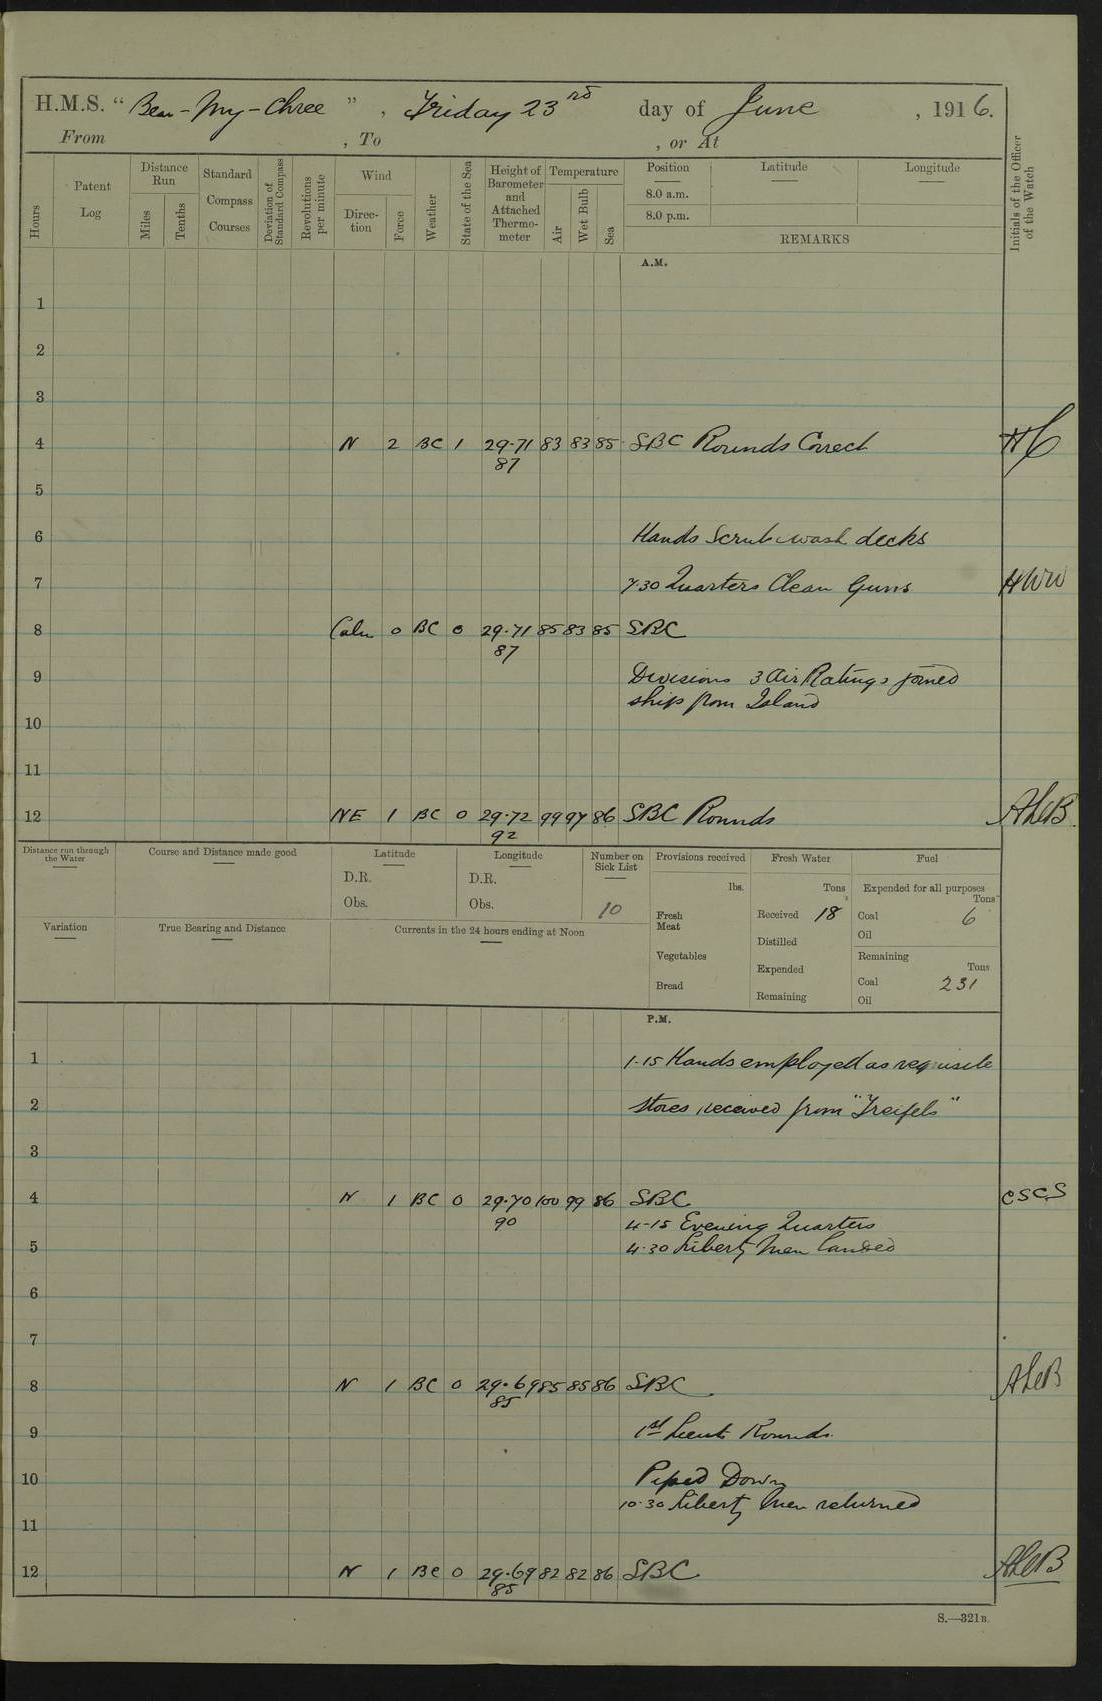 H.M.S. "Ben-my-Chree", Friday 23rd day of June, 1916.
From , To , or At
Hours
Patent Log
Distance Run
Miles
Tenths
Standard Compass Courses
Deviation of Standard Compass
Revolutions per minute
Wind
Direction
Force
Weather
State of the Sea
Height of Barometer and Attached Thermometer
Temperature
Air
Wet Bulb
Sea
Position
Latitude
Longitude
8.0 a.m.
8.0 p.m.
REMARKS
Initials of the Officer of the Watch
A.M.
1
2
3
4 N 2 BC 1 29.71 83 83 85 SBC Rounds Correct
87
5
6 Hands Scrub & wash decks
7 7.30 Quarters Clean Guns HWW
8 Calm 0 BC 0 29.71 85 83 85 SBC
87
9 Divisions 3 Air Ratings joined
ship from Island
10
11
12 NE 1 BC 0 29.72 99 97 86 SBC Rounds ALeB
92
Distance run through the Water
Course and Distance made good
Latitude
D.R.
Obs.
Longitude
D.R.
Obs.
Number on Sick List
10
Provisions received
lbs.
Fresh Meat
Vegetables
Bread
Fresh Water
Tons
Received 18
Distilled
Expended
Remaining
Fuel
Expended for all purposes
Tons
Coal 6
Oil
Remaining
Tons
Coal 231
Oil
Variation
True Bearing and Distance
Currents in the 24 hours ending at Noon
P.M.
1 1.15 Hands employed as requisite
2 Stores received from "Treifels"
3
4 N 1 BC 0 29.70 100 99 86 SBC CSCS
90
4-15 Evening Quarters
5 4.30 Liberty Men landed
6
7
8 N 1 BC 0 29.69 85 85 86 SBC ALeB
85
9 1st Lieuts Rounds.
10 Piped Down
10.30 Liberty Men returned
11
12 N 1 BC 0 29.69 82 82 86 SBC ALeB
85
S.—321B.